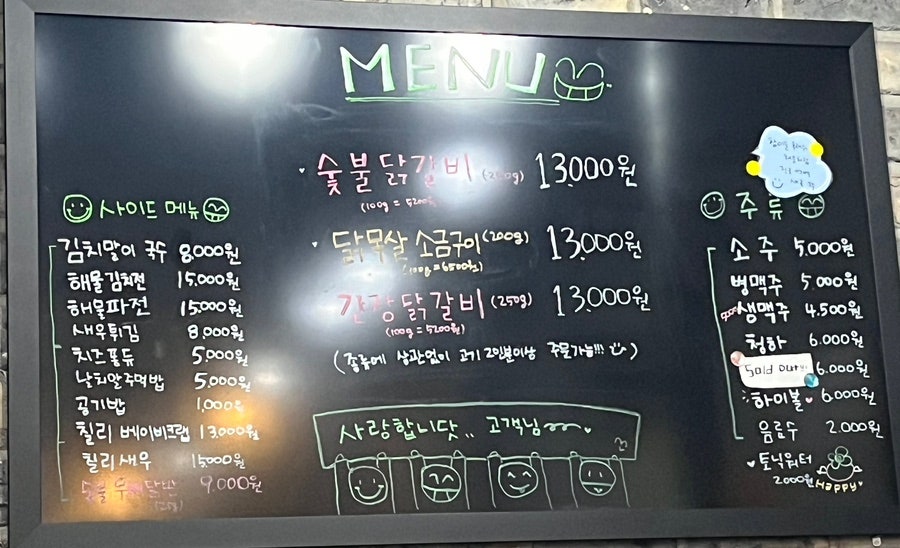 MENU
숯불닭갈비 (250g) 13,000원
(100g = 5200원)
닭목살 소금구이 (200g) 13,000원
(100g = 6500원)
간장닭갈비 (250g) 13,000원
(100g = 5200원)
(종류에 상관없이 고기 2인분이상 주문가능!!!)
사랑합니닷.. 고객님
사이드 메뉴
김치말이 국수 8,000원
해물김치전 15,000원
해물파전 15,000원
새우튀김 8,000원
치즈퐁듀 5,000원
날치알주먹밥 5,000원
공기밥 1,000원
칠리 베이비크랩 13,000원
칠리새우 15,000원
9,000원
주듀
소주 5,000원
병맥주 5,000원
생맥주 4,500원
청하 6,000원
Sold Out 6,000원
하이볼 6,000원
음료수 2,000원
토닉워터
2000원
Happy